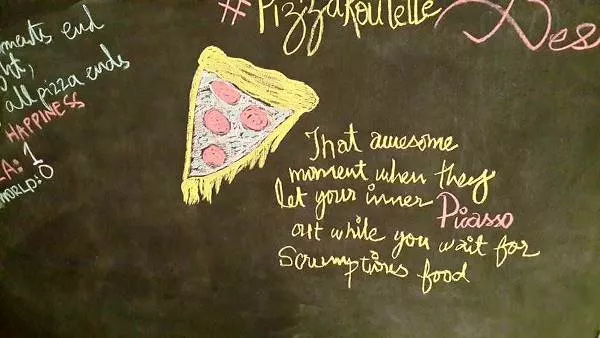 #PizzaRoulette
Des
ments end
all pizza ends
HAPPINESS
: 1
WORLD: 0
That awesome
moment when they
let your inner
Picasso
out while you wait for
Scrumptious food